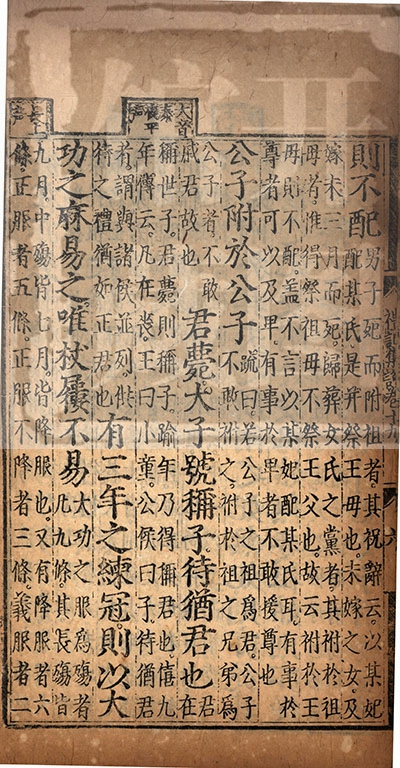 則不配
男子死而祔祖者。其祝辭云。以某妃
配某氏是并祭王母也。未嫁之女。及
嫁未三月而死。歸葬女氏之黨者。其祔於祖
母者。惟得祭祖母不祭王父也。故云祔於王
母則不配。蓋不言以某妃配某氏耳。有事於
尊者可以及卑。有事於卑者不敢援尊也
公子附於公子
疏曰。若公子之祖爲君。公子
不敢祔之。祔於祖之兄弟爲
公子者。不敢
戚君故也
君薨大子號稱子待猶君也
君在
稱世子。君薨則稱子。踰年乃得稱君也。僖九
年傳云。凡在喪。王曰小童。公侯曰子。待猶君
者。謂與諸侯並列。供
待之禮猶如正君也
有三年之練冠則以大
功之麻易之。唯杖屨不易
大功之服爲殤者
凡九條。其長殤皆
九月。中殤皆七月。皆降服也。又有降服者六
條。正服者五條。正服不降者三條。義服者二
大音
泰
喪平
聲
長上
聲